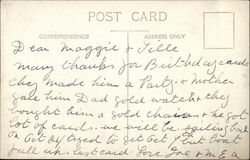 POST CARD
CORRESPONDENCE
ADDRESS ONLY
Dear Maggie & Tille
many thanks for Birthday cards
they made him a Party. & Mother
gave him Dad gold watch & they
bought him a gold chain & he got
lot of cards. we will be sailing
or Oct 24 tryed to get Oct but
full up. Last card. Love